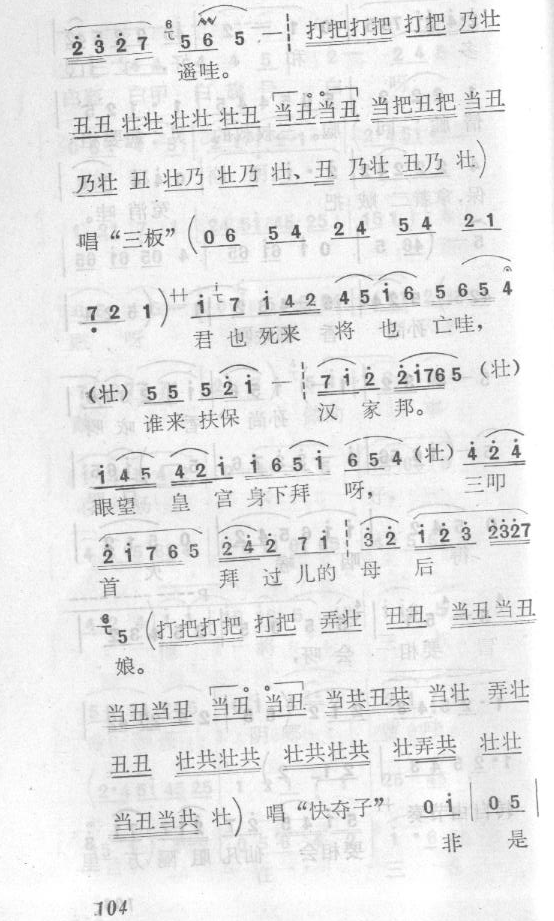 2 3 2 7 6 5 6 5 — 打把打把 打把 乃壮
遥哇。
丑丑 壮壮 壮壮 壮丑 当丑当丑 当把丑把 当丑
乃壮 丑 壮乃 壮乃 壮、丑 乃壮 丑乃 壮)
唱“三板”(0 6 5 4 2 4 5 4 2·1
7 2 1) サ i 7 i 4 2 4 5 i 6 5 6 5 4
君 也 死来 将 也 亡哇,
(壮) 5 5 5 2 i — 7 i 2 2 i 7 6 5 (壮)
谁来 扶保 汉 家 邦。
i 4 5 4 2 i i 6 5 i 6 5 4 (壮) 4 2 4
眼望 皇 宫 身下拜 呀, 三叩
2 i 7 6 5 2 4 2 7 i 3 2 i 2 3 2 3 2 7
首 拜 过 儿的 母 后
6 5 (打把打把 打把 弄壮 丑丑 当丑当丑
娘。
当丑当丑 当丑 当丑 当共丑共 当壮 弄壮
丑丑 壮共壮共 壮共壮共 壮弄共 壮壮
当丑当共 壮) 唱“快夺子” 0 i | 0 5 |
非 是
104